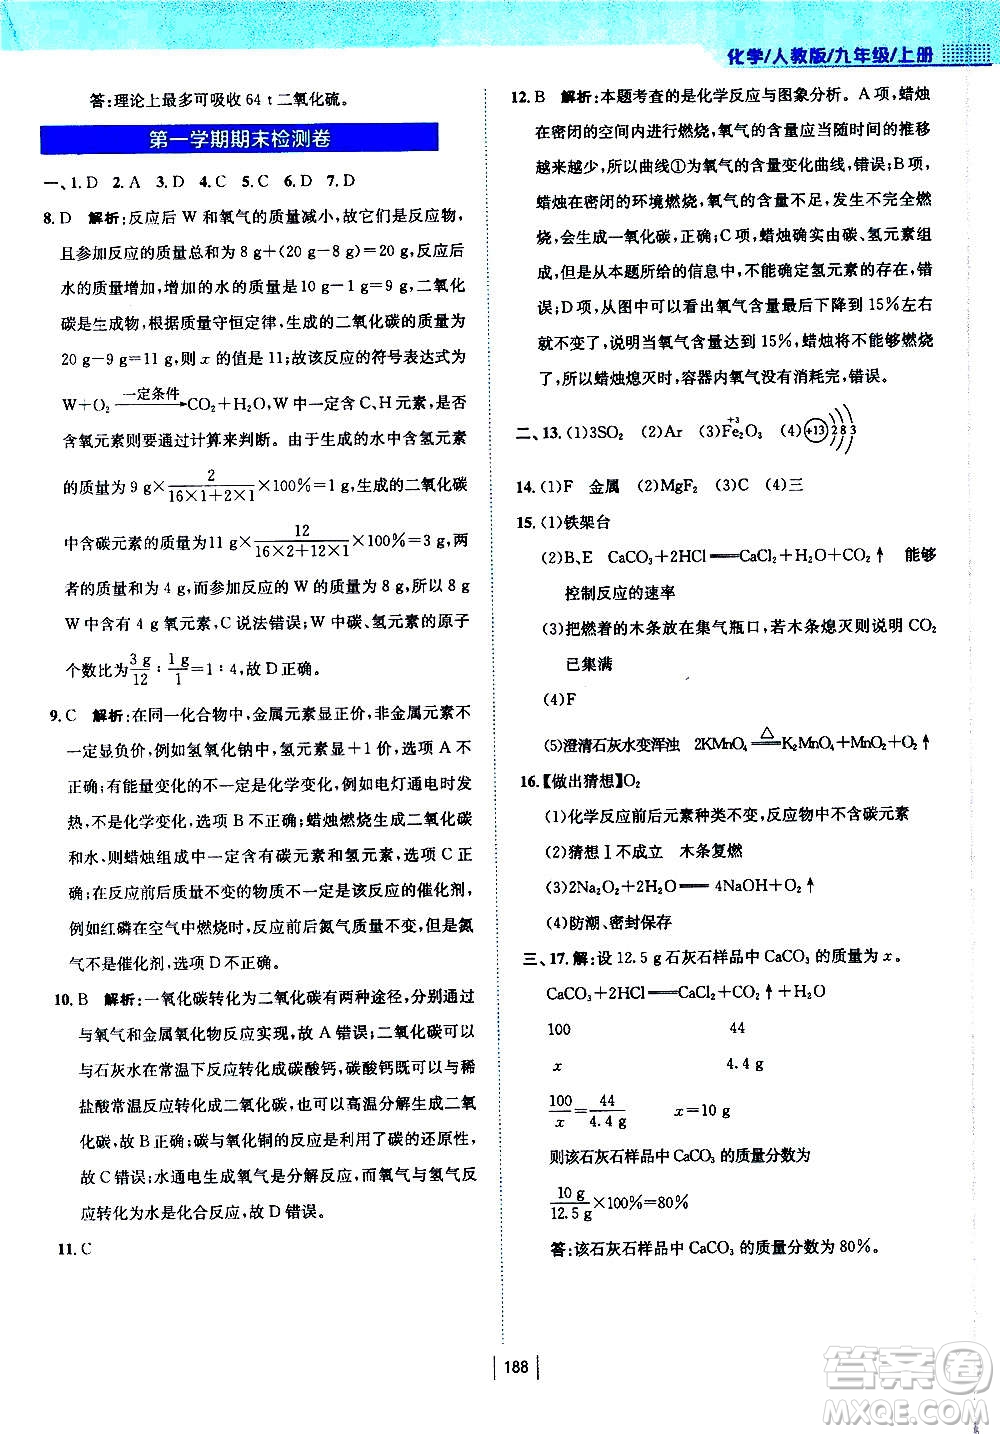 化学/人教版/九年级/上册
答:理论上最多可吸收 64 t 二氧化硫。
第一学期期末检测卷
一、1. D 2. A 3. D 4. C 5. C 6. D 7. D
8. D 解析:反应后 W 和氧气的质量减小,故它们是反应物,
且参加反应的质量总和为 8 g+(20 g-8 g)=20 g;反应后
水的质量增加,增加的水的质量为 10 g-1 g=9 g,二氧化
碳是生成物,根据质量守恒定律,生成的二氧化碳的质量为
20 g-9 g=11 g,则 x 的值是 11;故该反应的符号表达式为
W+O₂ —一定条件→ CO₂+H₂O,W 中一定含 C、H 元素,是否
含氧元素则要通过计算来判断。由于生成的水中含氢元素
的质量为 9 g×2/(16×1+2×1)×100%=1 g,生成的二氧化碳
中含碳元素的质量为 11 g×12/(16×2+12×1)×100%=3 g,两
者的质量和为 4 g,而参加反应的 W 的质量为 8 g,故 8 g
W 中含有 4 g 氧元素,C 说法错误;W 中碳、氢元素的原子
个数比为 3 g/12 : 1 g/1=1:4,故 D 正确。
9. C 解析:在同一化合物中,金属元素显正价,非金属元素不
一定显负价,例如氢氧化钠中,氢元素显+1 价,选项 A 不
正确;有能量变化的不一定是化学变化,例如电灯通电时发
热,不是化学变化,选项 B 不正确;蜡烛燃烧生成二氧化碳
和水,则蜡烛组成中一定含有碳元素和氢元素,选项 C 正
确;在反应前后质量不变的物质不一定是该反应的催化剂,
例如红磷在空气中燃烧时,反应前后氮气质量不变,但是氮
气不是催化剂,选项 D 不正确。
10. B 解析:一氧化碳转化为二氧化碳有两种途径,分别通过
与氧气和金属氧化物反应实现,故 A 错误;二氧化碳可以
与石灰水在常温下反应转化成碳酸钙,碳酸钙可以与稀
盐酸常温下反应转化成二氧化碳,也可以高温分解生成二氧
化碳,故 B 正确;碳与氧化铜的反应是利用了碳的还原性,
故 C 错误;水通电生成氧气是分解反应,而氧气与氢气反
应转化为水是化合反应,故 D 错误。
11. C
12. B 解析:本题考查的是化学反应与图象分析。A 项,蜡烛
在密闭的空间内进行燃烧,氧气的含量应随着时间的推移
越来越少,所以曲线①为氧气的含量变化曲线,错误;B 项,
蜡烛在密闭的环境燃烧,氧气的含量越来越少,不充分燃
烧,会生成一氧化碳,正确;C 项,蜡烛中应有碳、氢元素组
成,但是从本题所给的信息中,不能确定氢元素的存在,错
误;D 项,从图中可以看出氧气的含量下降到 15%左右
就不变了,说明当氧气含量下降到 15%时,蜡烛将不能够燃烧
了,所以蜡烛熄灭时,容器内氧气没有消耗完,错误。
二、13. (1)3SO₂ (2)Ar (3)Fe₂O₃ +3 (4)+13 2 8 3
14. (1)F 金属 (2)MgF₂ (3)C (4)三
15. (1)铁架台
(2)B、E CaCO₃+2HCl══CaCl₂+H₂O+CO₂↑ 能够
控制反应的速率
(3)把燃着的木条放在集气瓶口,若木条熄灭则说明 CO₂
已集满
(4)F
(5)澄清石灰水变浑浊 2KMnO₄ ══△ K₂MnO₄+MnO₂+O₂↑
16. 【做出猜想】O₂
(1)化学反应前后元素种类不变,反应物中不含碳元素
(2)猜想Ⅰ不成立 木条复燃
(3)2Na₂O₂+2H₂O══4NaOH+O₂↑
(4)防潮、密封保存
三、17. 解:设 12.5 g 石灰石样品中 CaCO₃ 的质量为 x。
CaCO₃+2HCl══CaCl₂+CO₂↑+H₂O
100 44
x 4.4 g
100/x=44/4.4 g x=10 g
则该石灰石样品中 CaCO₃ 的质量分数为
10 g/12.5 g×100%=80%
答:该石灰石样品中 CaCO₃ 的质量分数为 80%。
188
答案圈
MXQE.COM